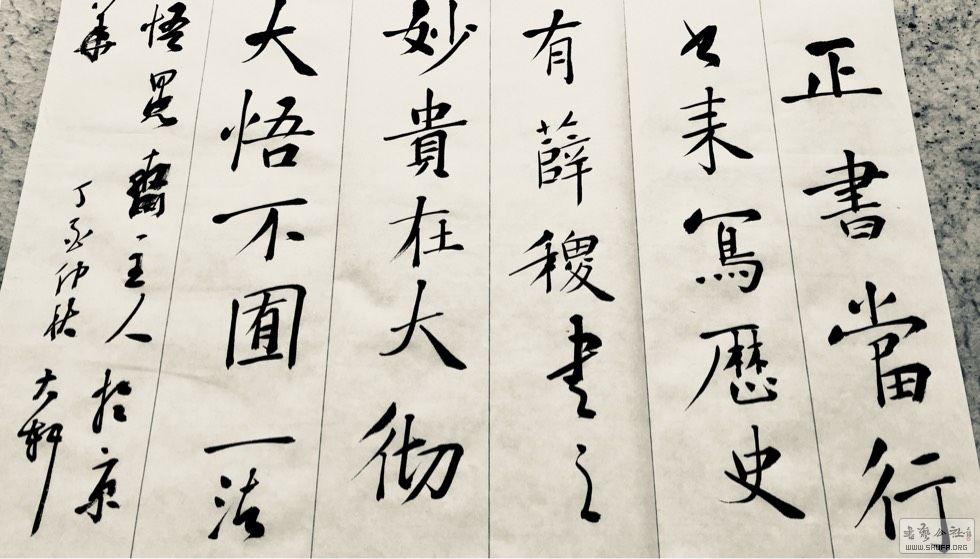 正書當行
书来寫歷史
有薛稷書之
妙貴在大彻
大悟不囿一法
悟齋主人於京
華 丁亥仲秋
书艺公社
WWW.SHUFA.ORG